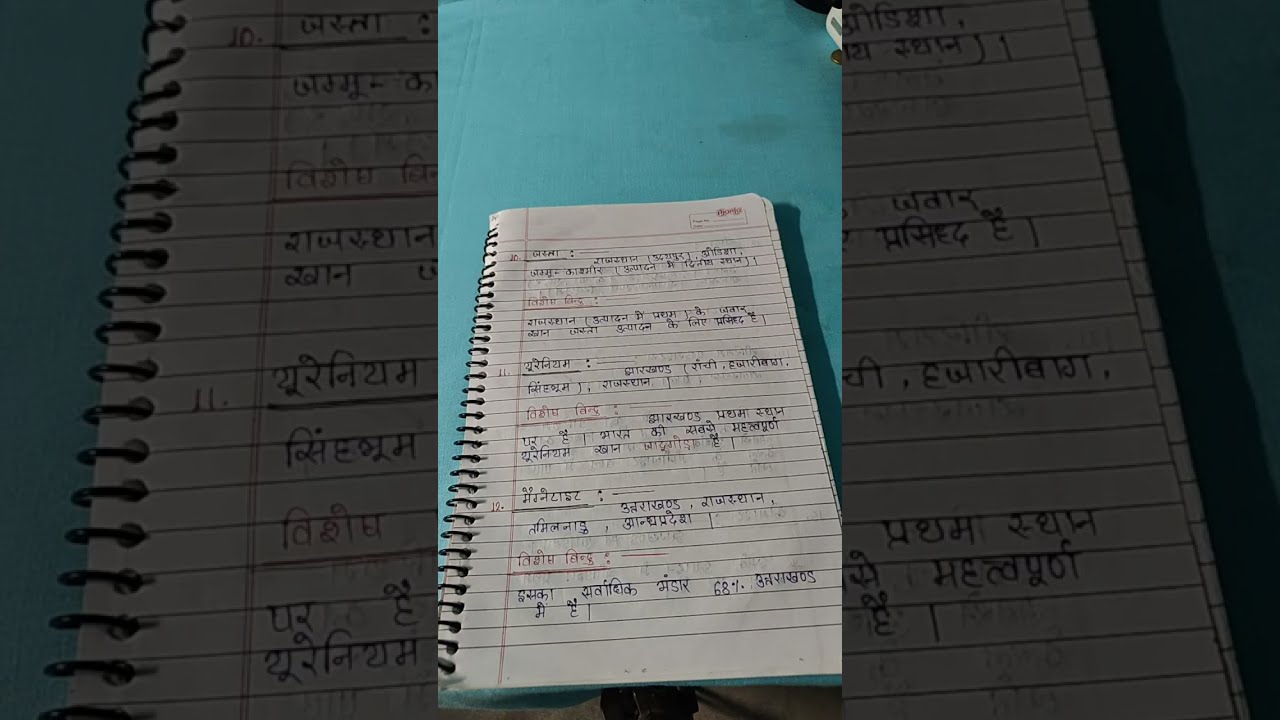 10. जस्ता :
राजस्थान (उदयपुर), ओडिशा,
जम्मू-काश्मीर (उत्पादन में द्वितीय स्थान)।
विशेष बिन्दु :
राजस्थान (उत्पादन में प्रथम) के जवार
खान जस्ता उत्पादन के लिए प्रसिध्द है।
11. यूरेनियम :
झारखण्ड (राँची, हजारीबाग,
सिंहभूम), राजस्थान।
विशेष बिन्दु :
झारखण्ड प्रथमा स्थान
पर है। भारत की सबसे महत्वपूर्ण
यूरेनियम खान जादूगोडा है।
12. मैग्नेटाइट :
उत्तराखण्ड, राजस्थान,
तमिलनाडु, आन्ध्रप्रदेश।
विशेष बिन्दु :
इसका सर्वाधिक भंडार 68% उत्तराखण्ड
में है।